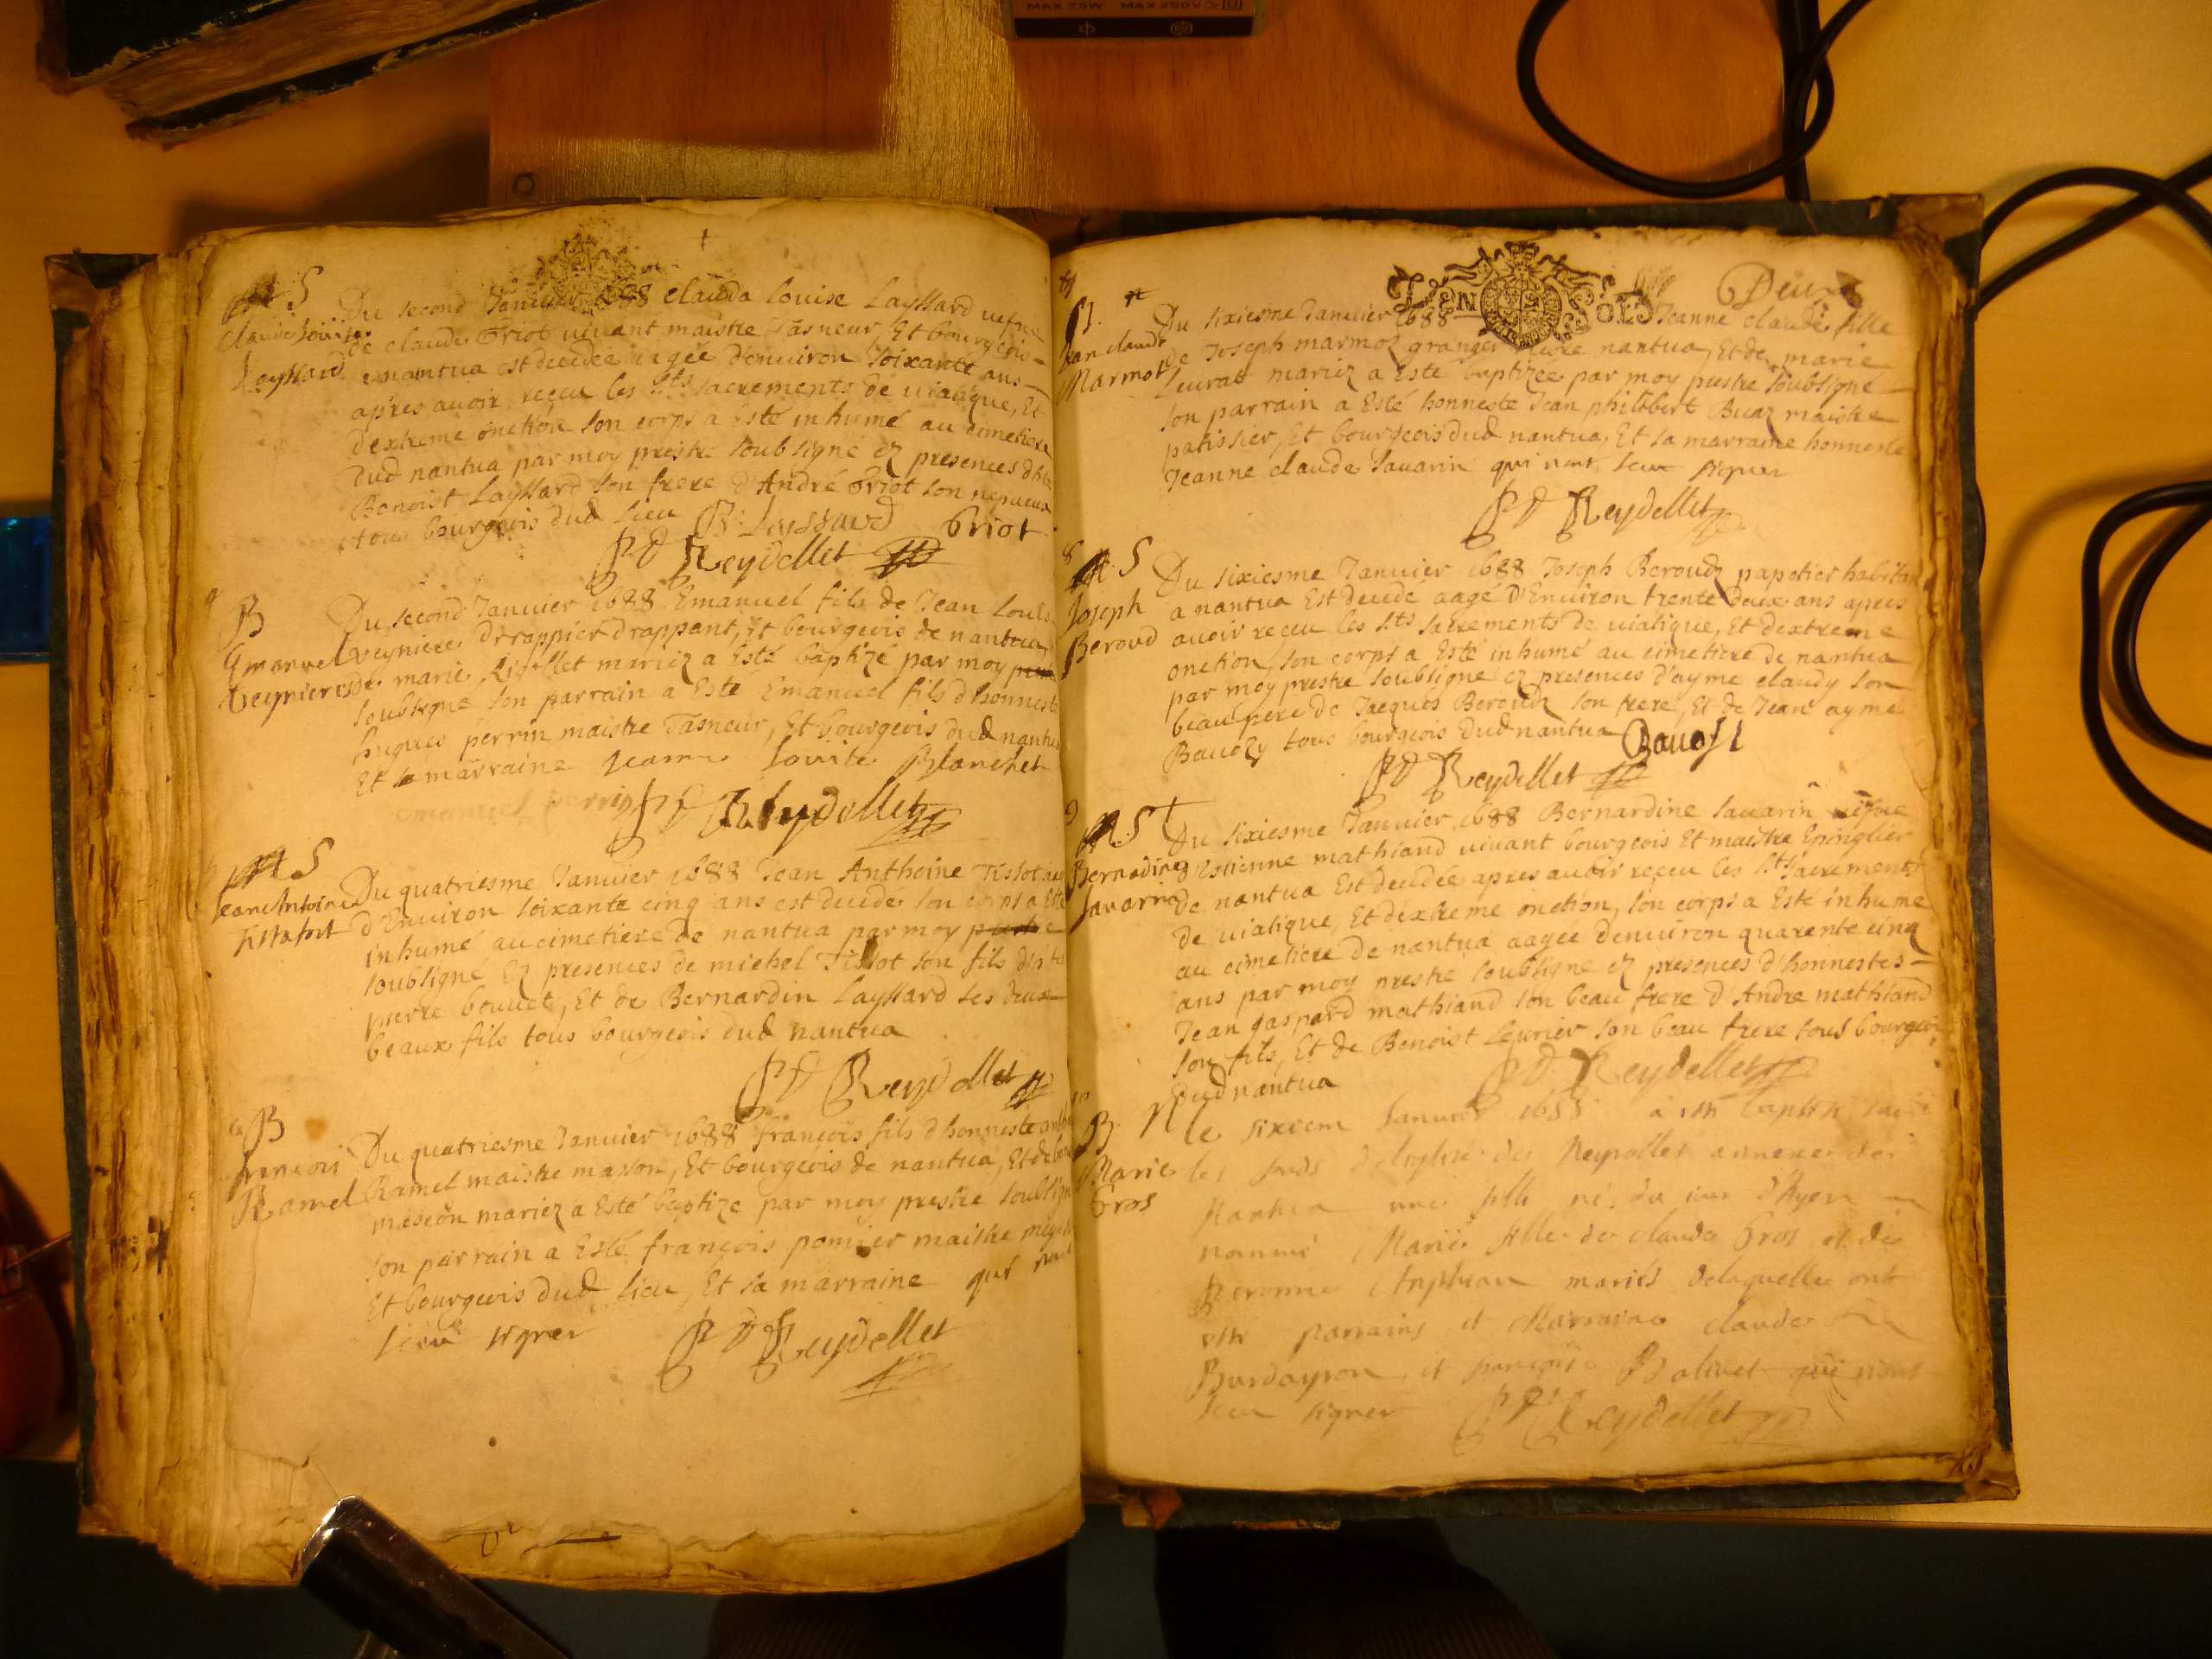 MAX 75W MAX 250V
S
Du second Janvier 1688 clauda louise Layssard vefve
Claude louise
de claude Griot vivant maistre Tasneur, Et bourgeois
Layssard
nantua est decedée aagée d'environ soixante ans
apres avoir reçeu les sts sacrements de viatique, Et
d'extreme onction son corps a esté inhumé au cimetiere
dud nantua par moy prestre soubsigné ez presences d'hte
Benoist Layssard son frere d'André Griot son nepveux
tous bourgeois dud lieu B. Layssard Griot
Reydellet
B
Du second Janvier 1688 Emanuel fils de Jean Louis
Emanuel
veyniere drappier drappant, Et bourgeois de nantua
Veynieres
de marie Rigollet mariez a Esté baptizé par moy
soubsigné son parrain a Esté Emanuel fils d'honneste
hugues perrin maistre Tasneur, Et bourgeois dud nantua
Et sa marraine Jeanne Louise Blanchet
Emanuel perrin Reydellet
S
Jean Antoine
Du quatriesme Janvier 1688 Jean Anthoine Tissot
d'Environ soixante cinq ans est decedé son corps a Esté
inhumé au cimetiere de nantua par moy prestre
soubsigné Ez presences de michel Tissot son fils d'htes
pierre bouvet, Et de Bernardin Layssard ses deux
beaux fils tous bourgeois dud nantua
Reydellet
B
françois
Du quatriesme Janvier 1688 françois fils d'honneste
Ramel
Ramel maistre masson, Et bourgeois de nantua, Et de
mascon mariez a Esté baptize par moy prestre soubsigné
son parrain a Esté françois pomier maistre
Et bourgeois dud lieu, Et sa marraine qui
sceu signer Reydellet
Deux
GEN SOLS
Du sixiesme Janvier 1688 Jeanne claude fille
Jean claude
Marmot
de Joseph marmoz granger nantua, Et de marie
Leurat mariez a Esté baptizee par moy prestre soubsigné
son parrain a Esté honneste Jean philibert Buaz maistre
patissier, Et bourgeois dud nantua, Et sa marraine honneste
Jeanne claude Savarin qui nont sceu signer
Reydellet
8
S
Du sixiesme Janvier 1688 Joseph Beroudz papetier habitant
Joseph
Beroud
a nantua Est decede aagé D'Environ trente deux ans apres
avoir reçeu les sts sacrements de viatique, Et dextreme
onction, son corps a Esté inhumé au cimetiere de nantua
par moy prestre soubsigne ez presences d'ayme claudy son
beaupere de Jacques Beroudz son frere, Et de Jean ayme
Bavozy tous bourgeois dud nantua Bavosi
Reydellet
9
S
Du sixiesme Janvier 1688 Bernardine Savarin vefve
Bernadine
Savarin
d'Estienne mathiand vivant bourgeois Et maistre Epinglier
de nantua Est decedée apres avoir reçeu les sts sacrements
de viatique, Et dextreme onction, son corps a Esté inhume
au cimetiere de nantua aagee denviron quarente cinq
ans par moy prestre soubsigne ez presences d'honnestes
Jean gaspard mathiand son beau frere d'Andre mathiand
son fils, Et de Benoist Levrier son beau frere tous bourgeois
dud nantua Reydellet
10
B
Marie
Gros
le sixiem Janvier 1688 a esté baptisé
les fonds de l'eglise de Neyrolles annexe de
Nantua une fille né du jour d'hyer
nommé Marie fille de claude Gros et de
mariés de laquelle ont
esté parrains et Marraine claude
Burdayron, et françoise Balivet qui nont
sceu signer Reydellet